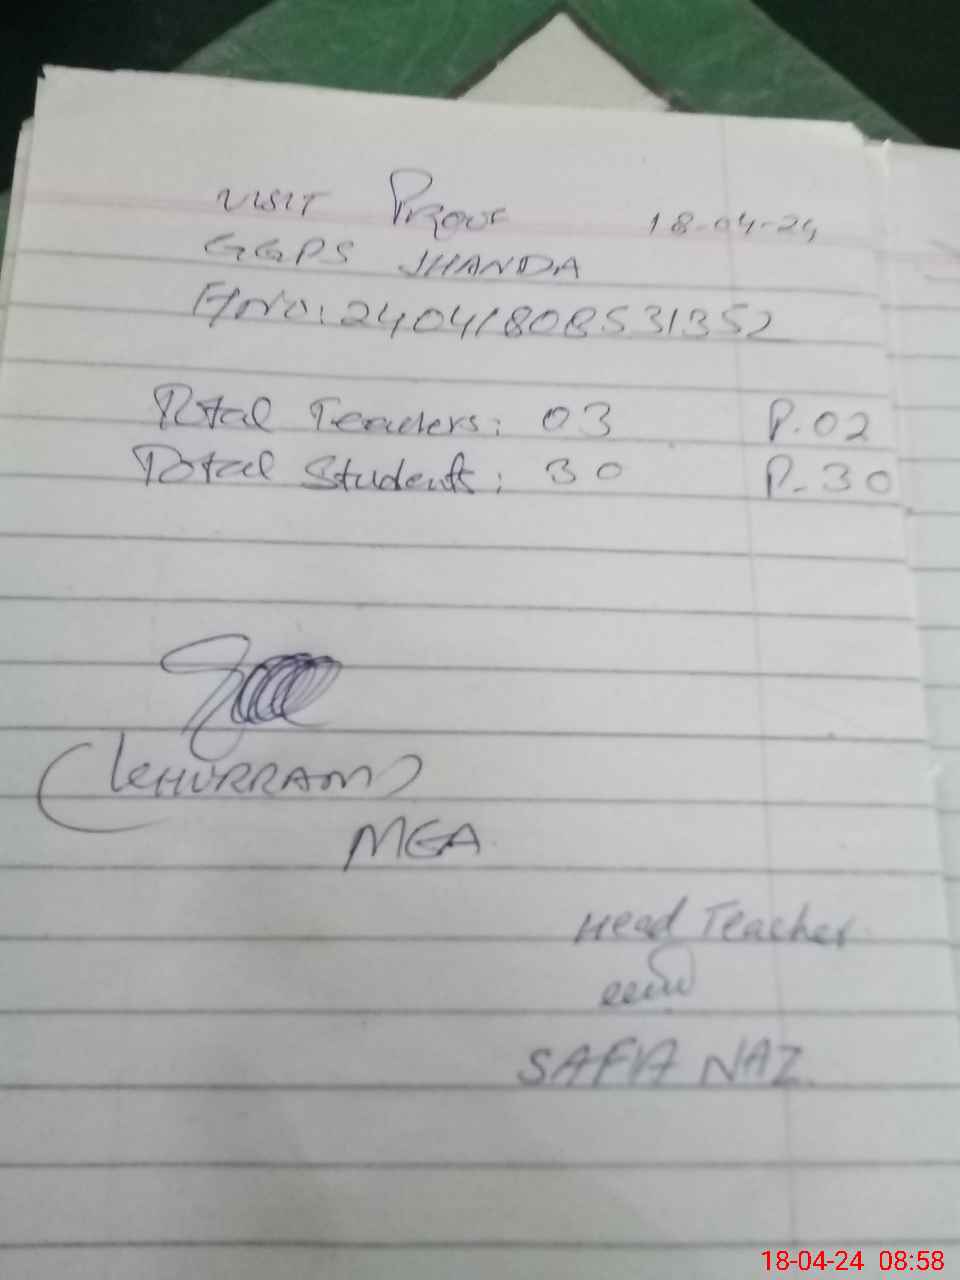 VISIT Proof 18-04-24
GGPS JHANDA
24041808531352
Total Teachers: 03 P.02
Total Students: 30 P-30
(KHURRAM)
MEA
Head Teacher
SAFIA NAZ
18-04-24 08:58